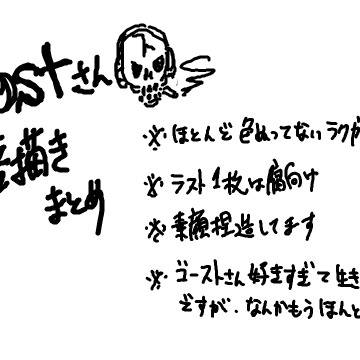 ostさん
描き
まとめ
※ほとんど色ぬってないラクガ
※ラスト1枚は腐向け
※素顔捏造してます
※ゴーストさん好きすぎて生き
ですが、なんかもうほんと